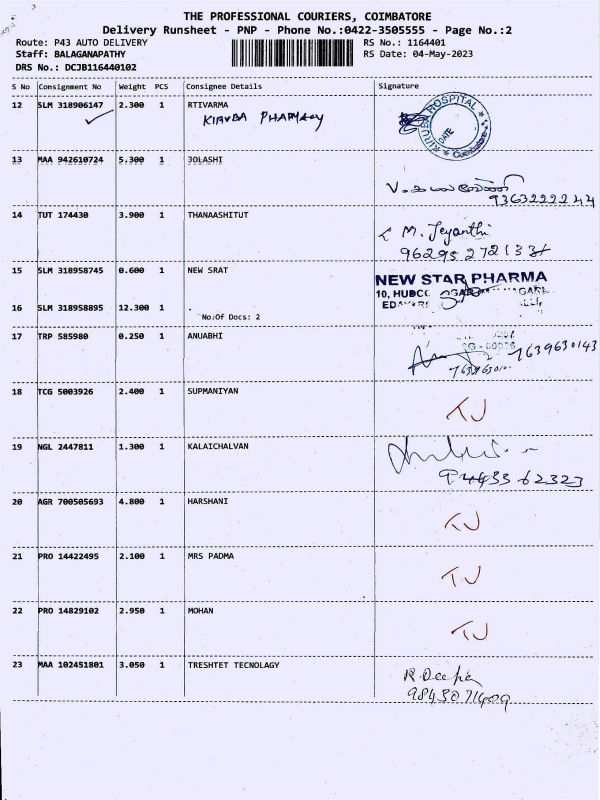 THE PROFESSIONAL COURIERS, COIMBATORE
Delivery Runsheet - PNP - Phone No.:0422-3505555 - Page No.:2
Route: P43 AUTO DELIVERY RS No.: 1164401
Staff: BALAGANAPATHY RS Date: 04-May-2023
DRS No.: DCJB116440102
S No Consignment No Weight PCS Consignee Details Signature
12 SLM 318906147 2.300 1 RTIVARMA
KIRUBA PHARMACY
KIRUBA HOSPITAL
DATE
Coimbatore
13 MAA 942610724 5.300 1 JOLASHI
9363222244
14 TUT 174430 3.900 1 THANAASHITUT
M. Jeyanthi
15 SLM 318958745 0.600 1 NEW SRAT
NEW STAR PHARMA
10, HUDCO
16 SLM 318958895 12.300 1 .
No.Of Docs: 2
17 TRP 585980 0.250 1 ANUABHI
7639630143
18 TCG 5003926 2.400 1 SUPMANIYAN
TJ
19 NGL 2447811 1.300 1 KALAICHALVAN
9443362323
20 AGR 700505693 4.800 1 HARSHANI
TJ
21 PRO 14422495 2.100 1 MRS PADMA
TJ
22 PRO 14829102 2.950 1 MOHAN
TJ
23 MAA 102451801 3.050 1 TRESHTET TECNOLAGY
R. Deepa
9843071409